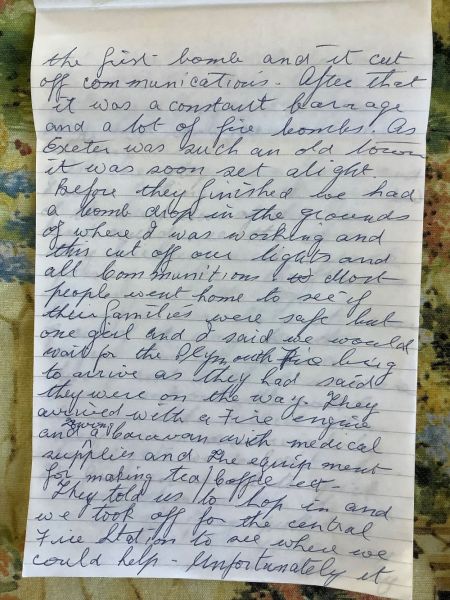 the first bomb and it cut
off communications. After that
it was a constant barrage
and a lot of fire bombs. As
Exeter was such an old town
it was soon set alight.
Before they finished we had
a bomb drop in the grounds
of where I was working and
this cut off our lights and
all Communitions Most
people went home to see if
their families were safe but
one girl and I said we would
wait for the Plymouth Fire
to arrive as they had said
they were on the way. They
arrived with a Fire engine
and towing a Caravan with medical
supplies and the equipment
for making tea/Coffee ect-
They told us to hop in and
we took off for the central
Fire Station to see where we
could help - Unfortunately it